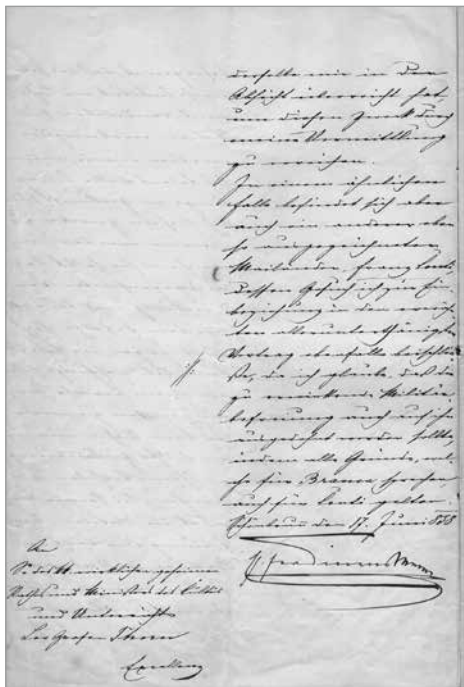 derselbe mir in der
Absicht überreicht hat,
um diesen Zweck durch
meine Vermittlung
zu erreichen.
In einem ähnlichen
Falle befindet sich aber
auch ein anderer eben
so ausgezeichneter
Mailänder, Franz Conti,
dessen Gesuch ich zur Ein-
beziehung in den erwähn-
ten allerunterthänigsten
Vortrag ebenfalls beischlie-
ße, da ich glaube, daß die
zu erwirkende Militär-
befreiung auch auf ihn
ausgedehnt werden sollte,
indem alle Gründe, wel-
che für Branca sprechen,
auch für Conti gelten.
Schönbrunn den 17. Juni 858
An
Sr des kk wirklichen geheimen
Rathes und Ministers des Cultus
und Unterrichts
Leo Grafen Thun
Excellenz